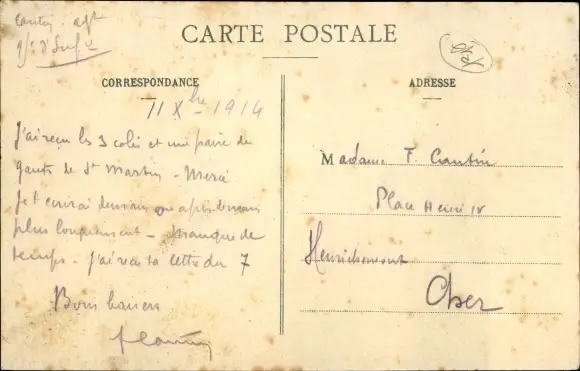 CARTE POSTALE
CORRESPONDANCE
ADRESSE
11 Xbre 1914
J'ai reçu les 3 colis et une paire de
gants de St Martin - Merci
Je t'écrirai demain ou après demain
plus longuement - Manque de
temps - J'ai reçu ta lettre du 7
Bons baisers
Madame F. Cantin
Place Henri IV
Henrichemont
Cher